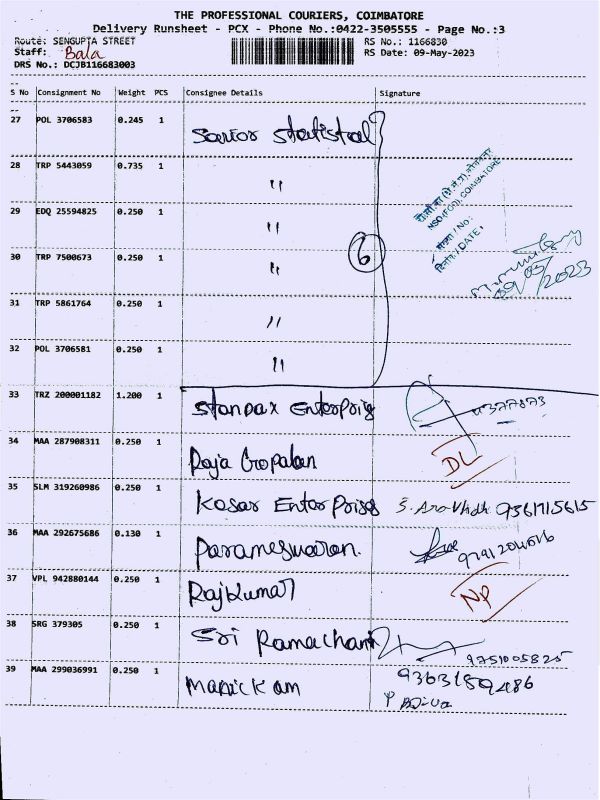 THE PROFESSIONAL COURIERS, COIMBATORE
Delivery Runsheet - PCX - Phone No.:0422-3505555 - Page No.:3
Route: SENGUPTA STREET RS No.: 1166830
Staff: Bala RS Date: 09-May-2023
DRS No.: DCJB116683003
S No Consignment No Weight PCS Consignee Details Signature
27 POL 3706583 0.245 1 Senior Statistical
28 TRP 5443059 0.735 1 "
NSO(FOD), COIMBATORE
29 EDQ 25594825 0.250 1 "
/ No:
/ DATE:
30 TRP 7500673 0.250 1 " 6
09/05/2023
31 TRP 5861764 0.250 1 "
32 POL 3706581 0.250 1 "
33 TRZ 200001182 1.200 1 Stanpax Enterprise
34 MAA 287908311 0.250 1 Raja Gopalan DL
35 SLM 319260986 0.250 1 Kosar Enterprises 9361715615
36 MAA 292675686 0.130 1 Parameswaran.
37 VPL 942880144 0.250 1 Rajkumar NP
38 SRG 379305 0.250 1 Sri Ramachan
9751005825
39 MAA 299036991 0.250 1 Manickam